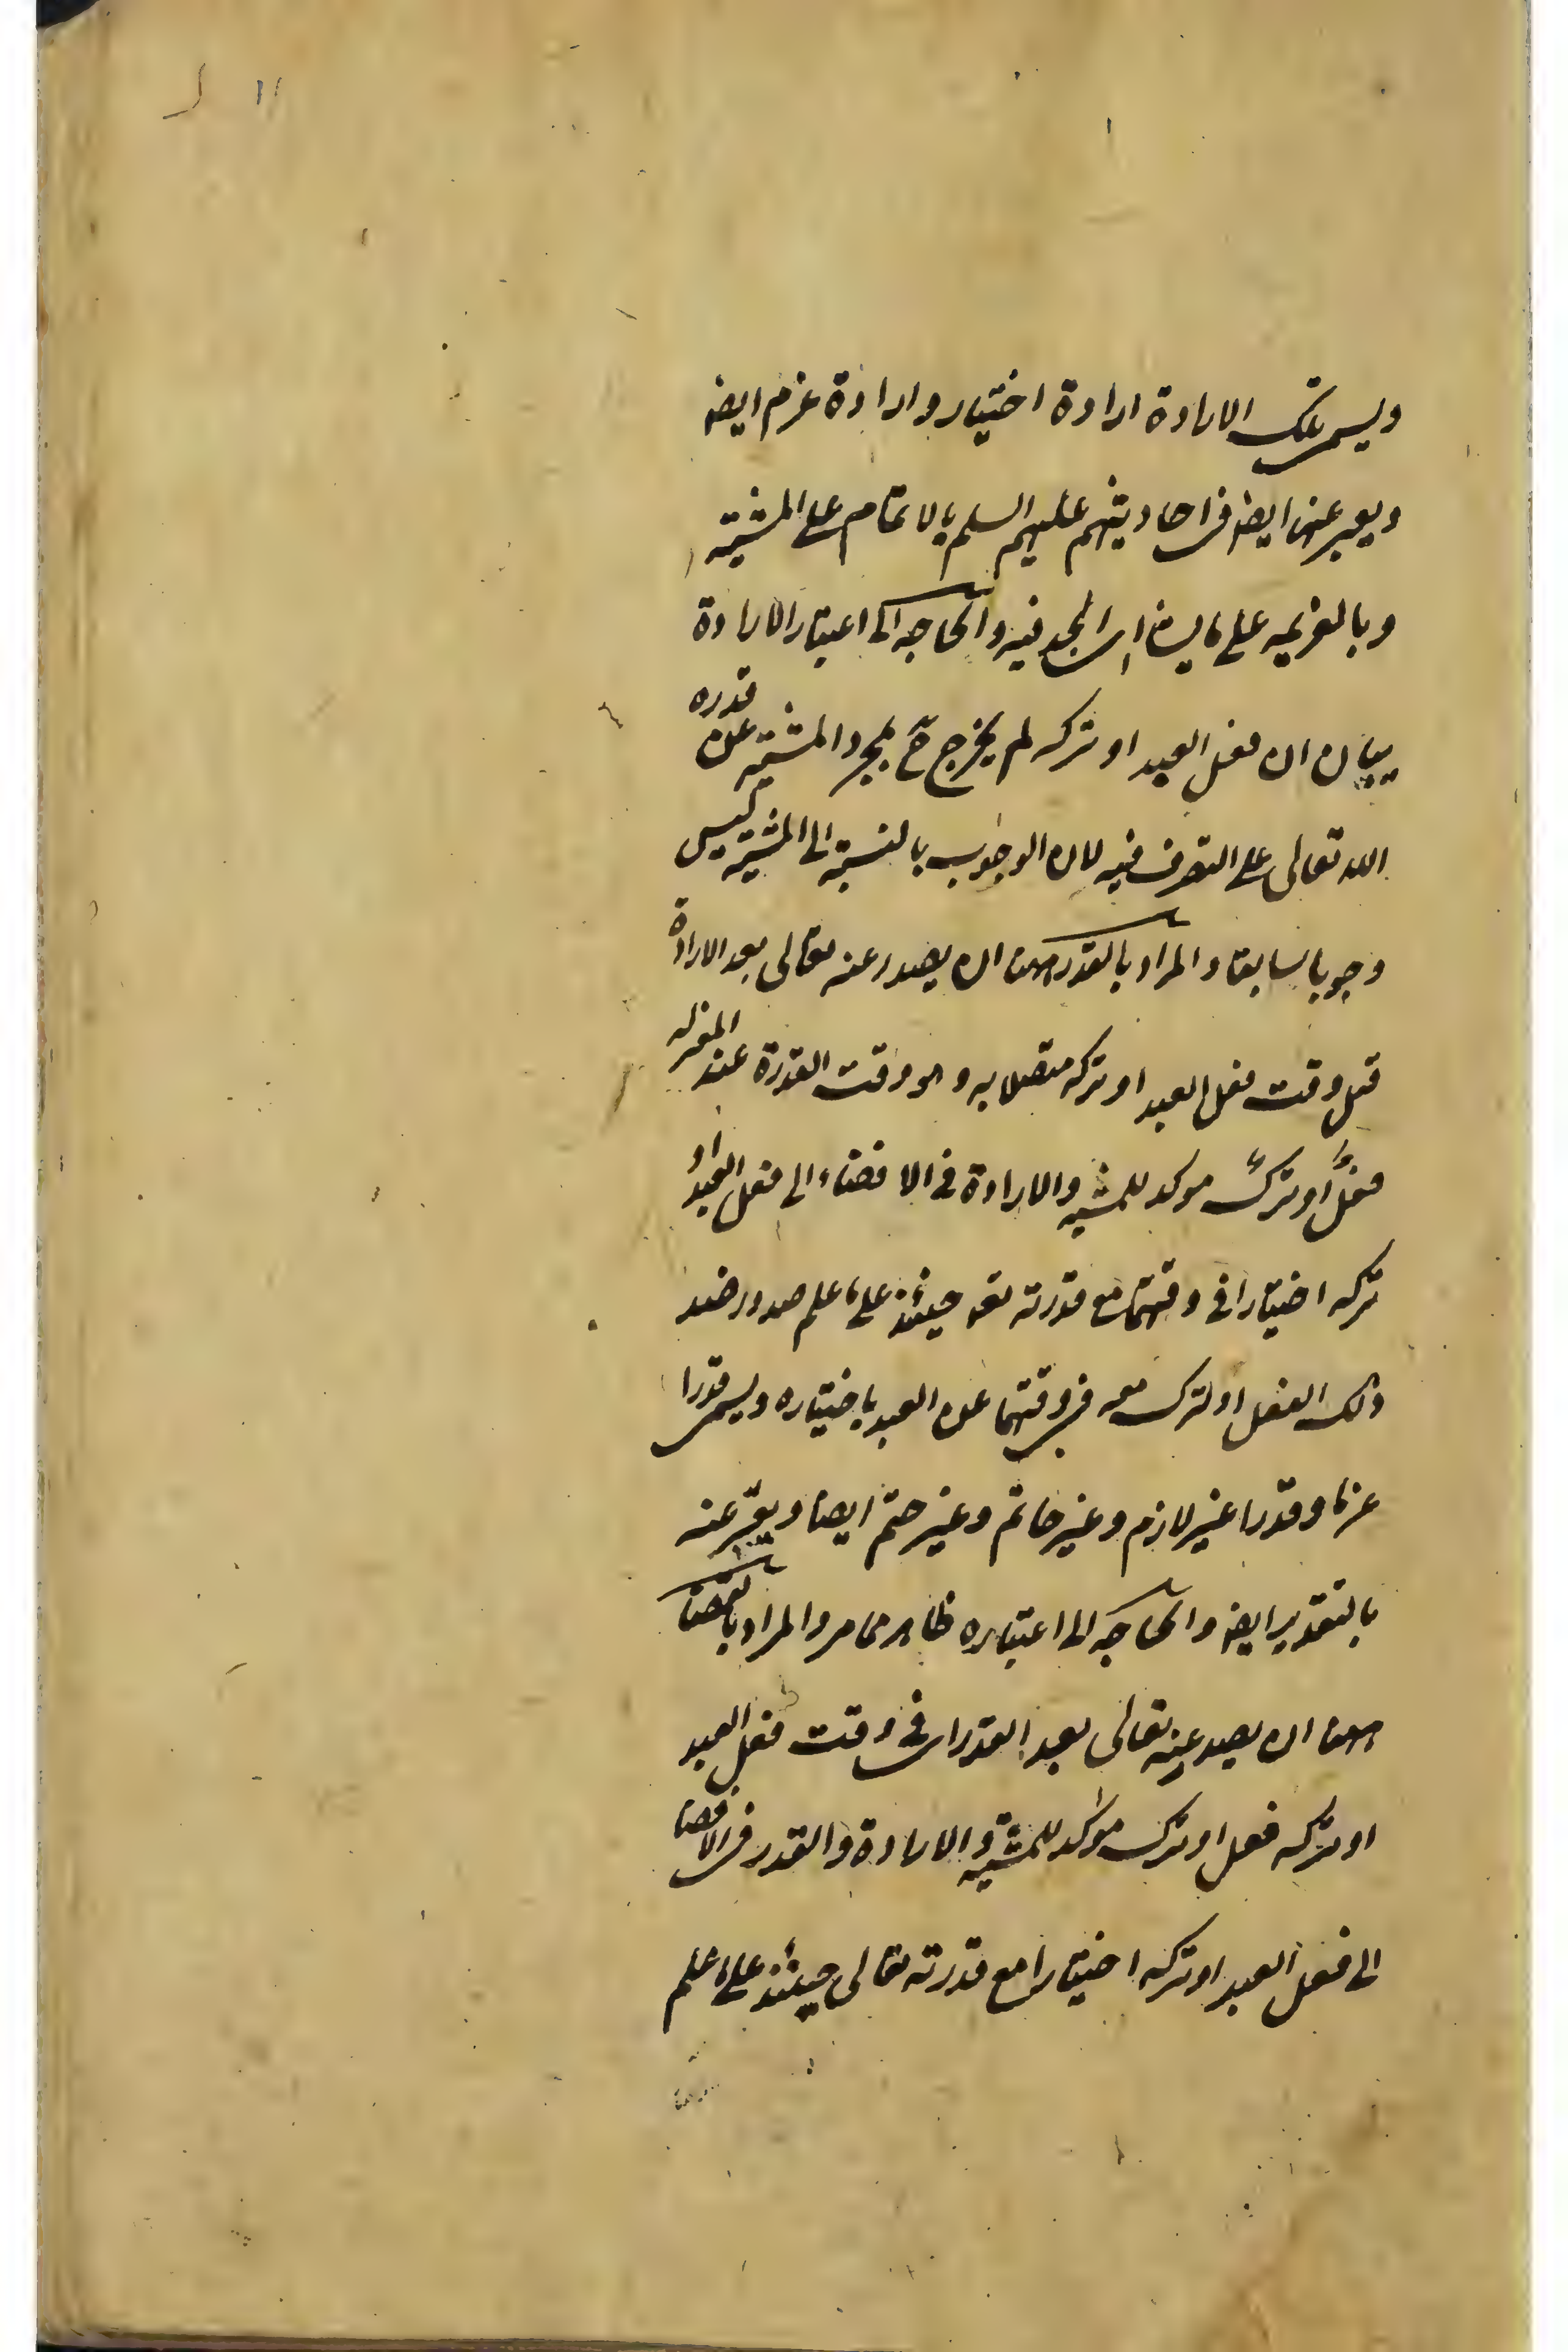 ويسمى تلك الارادة ارادة اختيار وارادة عزم ايضا
ويعبر عنها ايضا فى احاديثهم عليهم السلم بالاتمام على المشية
وبالعزيمه على ما يشاء اى الجد فيه والحاجه الى اعتبار الارادة
بيان ان فعل العبد او تركه لم يخرج ح بمجرد المشية عن قدره
الله تعالى على التصرف فيه لان الوجوب بالنسبة الى المشية ليس
وجوبا سابقا والمراد بالقدر هنا ان يصدر عنه تعالى بعد الارادة
قبل وقت فعل العبد او تركه متصلا به وهو وقت القدرة عند المعتزله
فعلٌ او تركٌ موكد للمشيه والارادة فى الافضاء الى فعل العبد او
تركه اختيارا فى وقتهما مع قدرته تعه حينئذ على ما علم صدور ضد
ذلك الفعل او الترك معه فى وقتهما عن العبد باختياره ويسمى قدرا
عزما وقدرا غير لازم وغير حاتم وغير حتم ايضا ويعبّر عنه
بالتقدير ايضا والحاجه الى اعتباره ظاهر مما مر والمراد بالقضا
هنا ان يصدر عنه تعالى بعد القدر اى فى وقت فعل العبد
او تركه فعل او ترك موكد للمشية والارادة والقدر فى الافضا
الى فعل العبد او تركه اختيارا مع قدرته تعالى حينئذ على ما علم